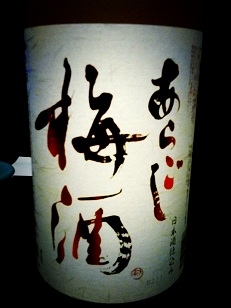 あらごし
梅酒
日本酒仕込み